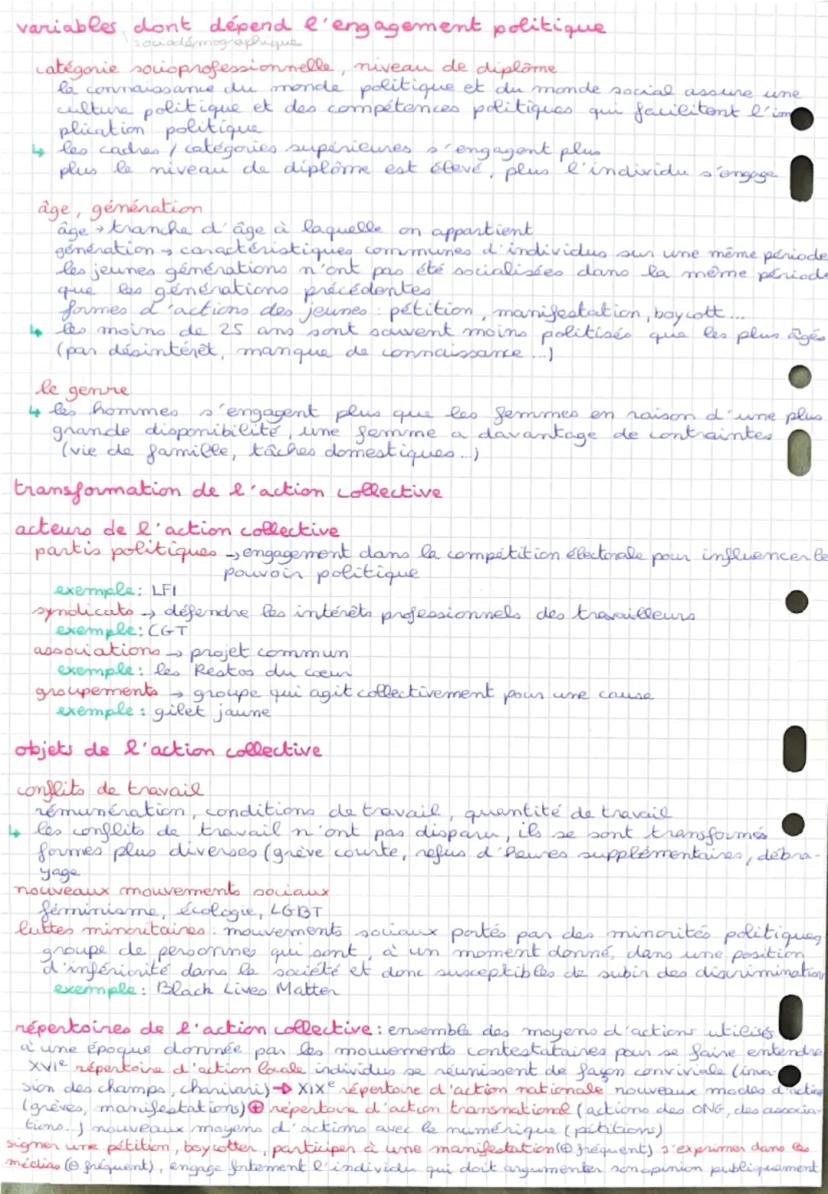 variables dont dépend l'engagement politique
sociodémographique
catégorie socioprofessionnelle, niveau de diplôme
la connaissance du monde politique et du monde social assure une
culture politique et des compétences politiques qui facilitent l'im
plication politique
↳ les cadres / catégories supérieures s'engagent plus
plus le niveau de diplôme est élevé, plus l'individu s'engage
âge, génération
âge → tranche d'âge à laquelle on appartient
génération → caractéristiques communes d'individus sur une même période
les jeunes générations n'ont pas été socialisées dans la même période
que les générations précédentes
formes d'actions des jeunes : pétition, manifestation, boycott...
↳ les moins de 25 ans sont souvent moins politisés que les plus âgés
(par désintérêt, manque de connaissance...)
le genre
↳ les hommes s'engagent plus que les femmes en raison d'une plus
grande disponibilité, une femme a davantage de contraintes
(vie de famille, tâches domestiques..)
transformation de l'action collective
acteurs de l'action collective
partis politiques → engagement dans la compétition électorale pour influencer le
pouvoir politique
exemple : LFI
syndicats → défendre les intérêts professionnels des travailleurs
exemple : CGT
associations → projet commun
exemple : les Restos du cœur
groupements → groupe qui agit collectivement pour une cause
exemple : gilet jaune
objets de l'action collective
conflits de travail
rémunération, conditions de travail, quantité de travail
↳ les conflits de travail n'ont pas disparu, ils se sont transformés
formes plus diverses (grève courte, refus d'heures supplémentaires, débra-
yage
nouveaux mouvements sociaux
féminisme, écologie, LGBT
luttes minoritaires : mouvements sociaux portés par des minorités politiques,
groupe de personnes qui sont, à un moment donné, dans une position
d'infériorité dans la société et donc susceptibles de subir des discrimination
exemple : Black Lives Matter
répertoires de l'action collective : ensemble des moyens d'actions utilisés
à une époque donnée par les mouvements contestataires pour se faire entendre
XVIe répertoire d'action locale individus se réunissent de façon conviviale (inva-
sion des champs, charivari) → XIXe répertoire d'action nationale nouveaux modes d'action
(grèves, manifestations) ⊕ répertoire d'action transnational (actions des ONG, des associa-
tions..) nouveaux moyens d'actions avec le numérique (pétitions)
signer une pétition, boycotter, participer à une manifestation (⊕ fréquent) s'exprimer dans les
médias (⊖ fréquent), engage fortement l'individu qui doit argumenter son opinion publiquement